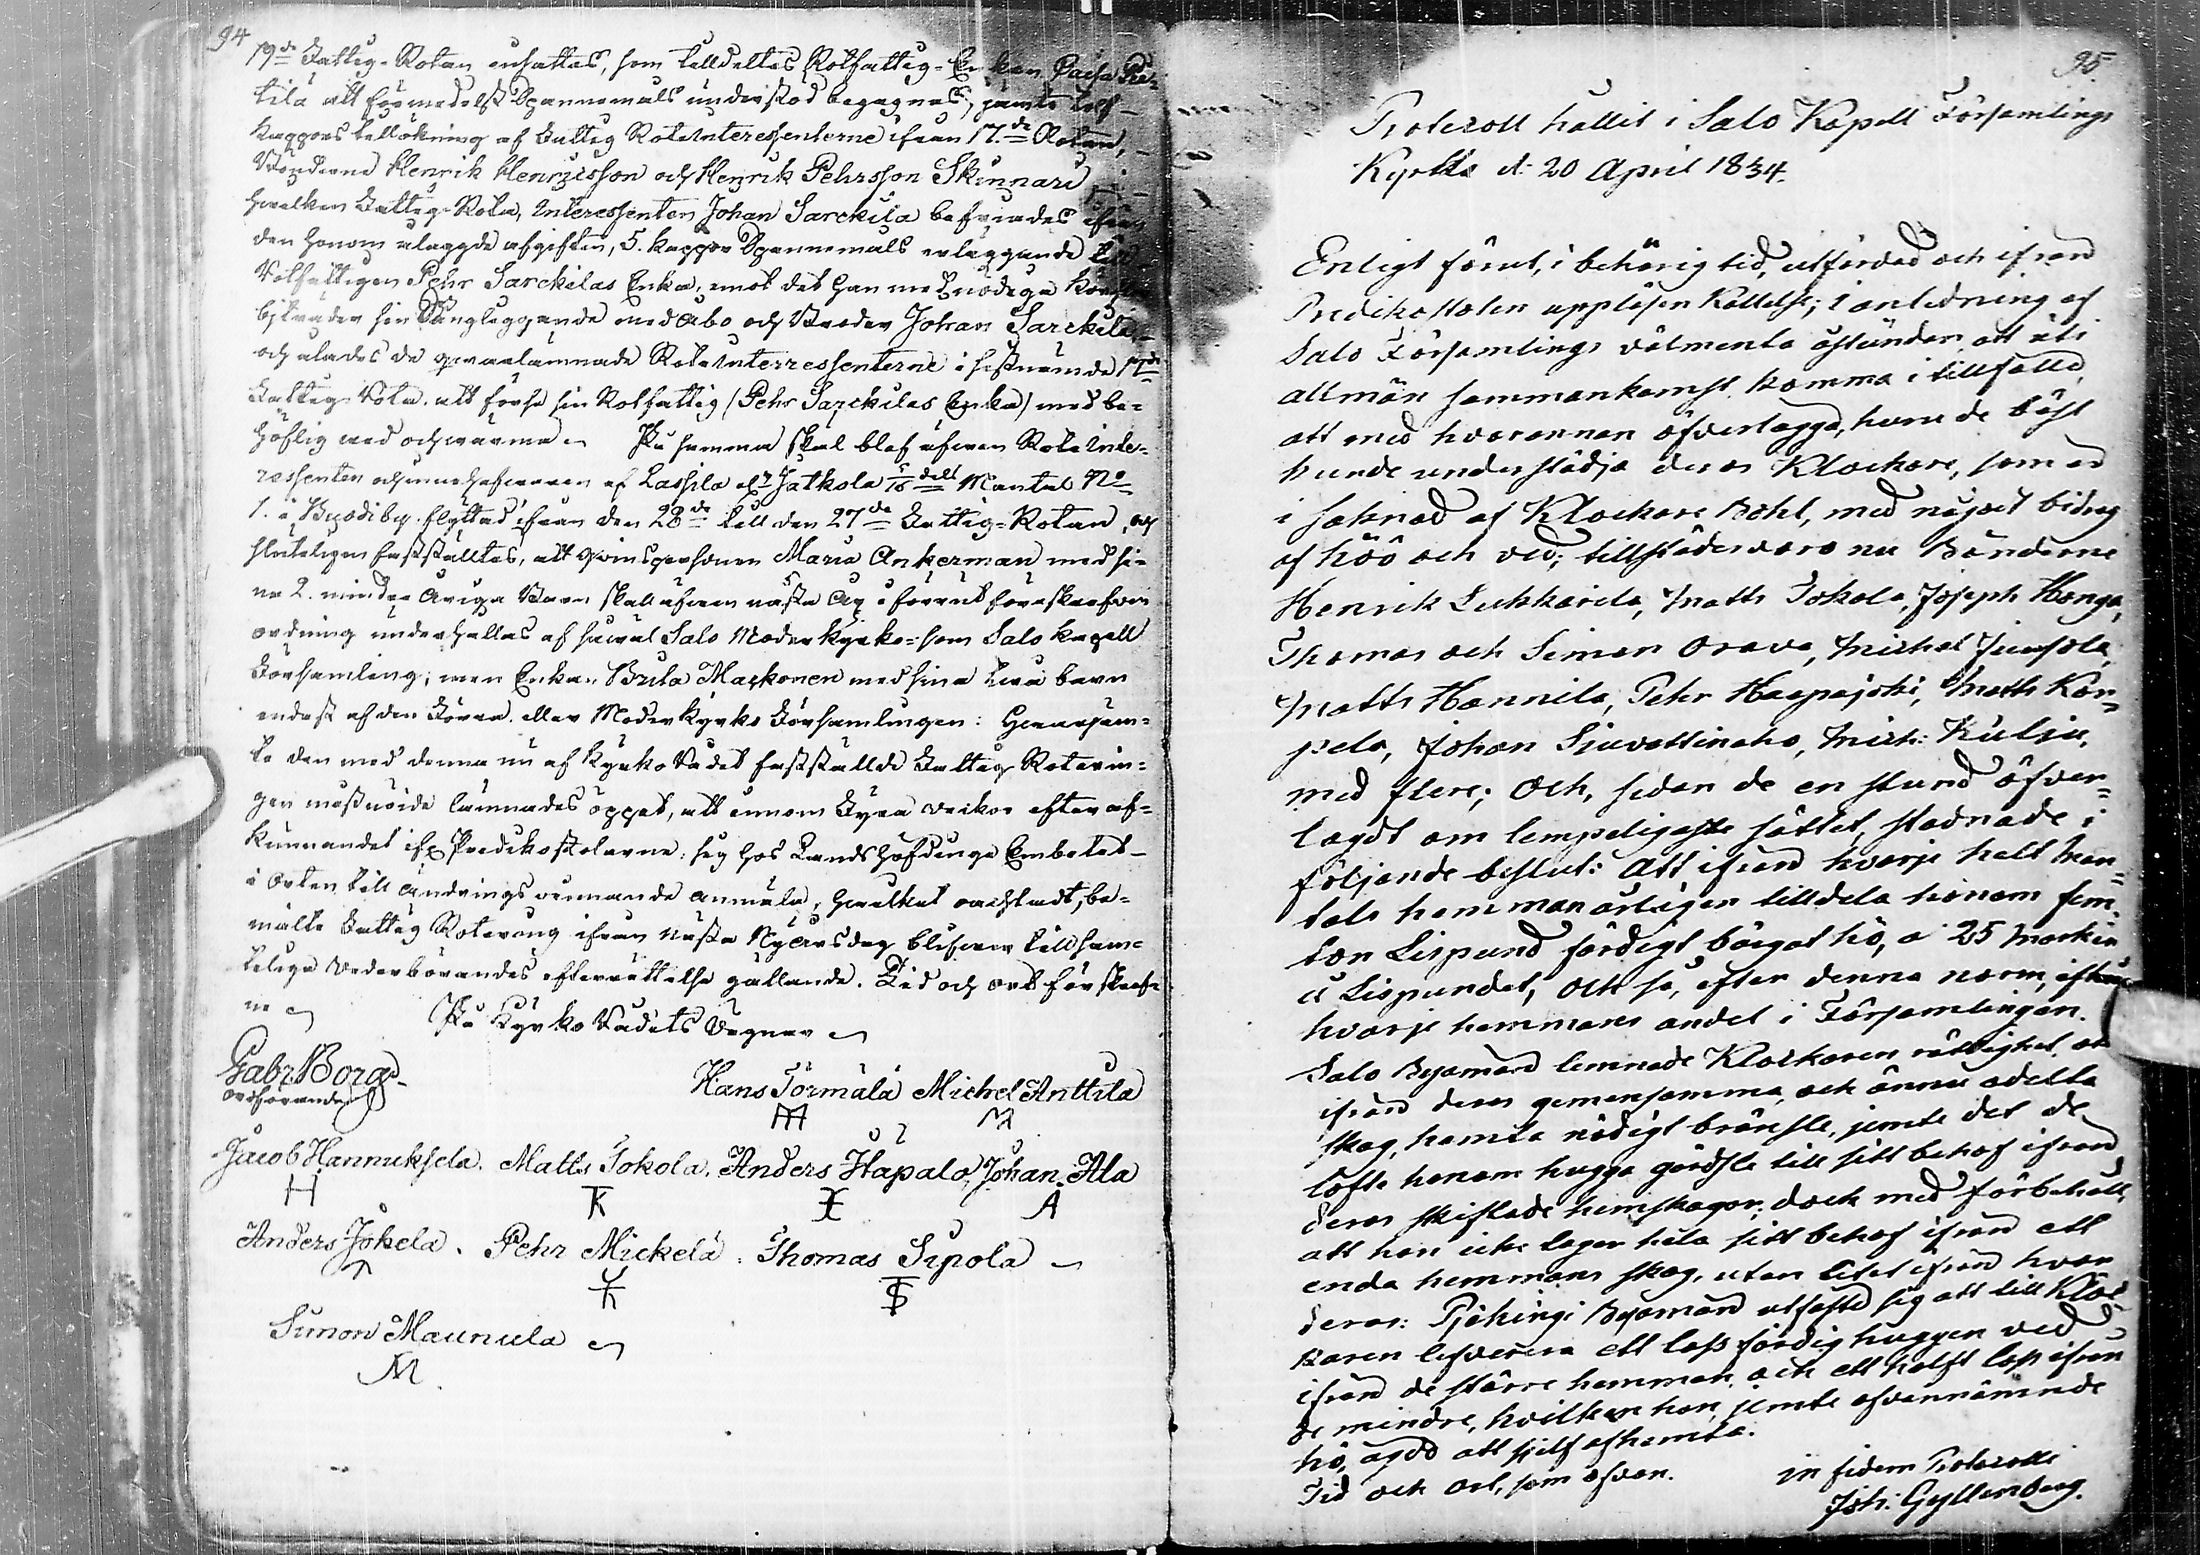 94
19de Fattig-Rotan ansattes, som tilldeltes Rotfattig-Enkan Pie-
tilä att förmedelst Spannemåls understöd begagnas, jämte tolf
Kappars tillökning af Fattig Rote Interessenterne ifrån 17de Rotan,
Bönderne Henrik Henricsson och Henrik Pehrsson Skinnari
hvilken Fattig-Rota, Interessenten Johan Sarckila befriades ifrån
den honom ålaggde afgiften, 5. kappar Spannemåls erläggande
Rotfattigen Pehr Sarckilas Enka, emot det han med nödiga
biträder sin Sängliggande med åbo och Broder Johan Sarckila,
och ålades de qvarlämnade Rote Interressenterne i sistnämde 17de
Fattig-Rota, att förse sin Rotfattig (Pehr Sarckilas Enka) med be-
höflig ved och varma. På samma skäl blef äfven Rote Inte-
ressenten och innehafvaren af Lassila elr Jatkola 5/16 dels Mantal No
1. i Brodiby flyttad ifrån den 28de till den 27de Fattig-Rotan, och
sluteligen fastställtes, att Qvinspersonen Maria Ankerman med si-
na 2. mindre åriga Barn skall äfven nästa År i förrut föreskrefven
ordning underhållas af såväl Salo Moderkyrko- som Salo kapell
Församling; men Enkan Brita Markonen med sina två barn
endast af den Förra. eller Moderkyrko Församlingen: Hvarjäm-
te den med denna nu af Kyrko Rådet fastställde Fattig Roterin-
gen missnöide lämnades öppet, att innom Fyra veckor efter af-
kunnandet ifr Predikostolarne, sig hos Landshöfdinge Embetet
i Orten till ändrings vinnande anmäla, hvilket oachtadt, be-
mälte Fattig Rotering ifrån nästa Nyårsdag blifver till sam-
telige Vederbörandes efterrättelse gällande. Tid och ort förskref-
ne På Kyrko Rådets Vegnar
Gabr Borg
Ordförande
Hans Törmälä Michel Anttila
M
Jacob Hannuksela. Matts Tokola. Anders Hapalo. Johan Ala
H K A
Anders Jokela. Pehr Mickelä. Thomas Sipola
Simon Maunula
M.
95
Protocoll hållit i Salo Kapell Församlings
Kyrka d: 20 April 1834.
Enligt förut, i behörig tid, utfärdad och ifrån
Predikostolen uppläsen Kallelse, i anledning af
Salo Församlings välmenta åstundan att uti
allmän sammankomst komma i tillfälle
att med hvarannan öfverlägga, huru de bäst
kunde understödja deras Klockare, som är
i saknad af Klockare Bohl, med någet bidrag
af höö och ved; tillstädes voro nu Bönderne
Henrik Lukkarila, Matts Tokola, Joseph Honga,
Thomas och Simon Orava, Michel Juusola,
Matts Hannila, Pehr Haapajoki, Matts Kar-
pela, Johan Siuvattinaho, Mich: Kulju,
med flere; Och, sedan de en stund öfver-
lagdt om lempeligaste sättet, stadnade i
följande beslut: Att ifrån hvarje helt Man-
tals hemman årligen tilldela honom fem-
ton Lispund färdigt bärgat hö, a 25 marker
å Lispundet, och så, efter denna norm, ifrån
hvarje hemmans andel i Församlingen.
Salo Byamän lemnade Klockaren rättighet, at
ifrån deras gemensamma, och ännu odelta
skog, hämta nödigt bränsle, jemte det de
lofte honom hugga gärdsle till sitt behof ifrån
deras skiftade hemskogar; dock med förbehåll,
att han icke tager hela sitt behof ifrån ett
enda hemmans skog, utan litet ifrån hvar
deras: Pjehingi Byamän utfäste sig att till Kloc-
karen lefverera ett lass färdig huggen ved
ifrån de större hemman, och ett halft lass ifrån
de mindre, hvilken han, jemte ofvannämnde
hö, ägde att sjelf afhemta.
Tid och ort, som ofvan. in fidem Protocolli
Joh: Gyllenberg.